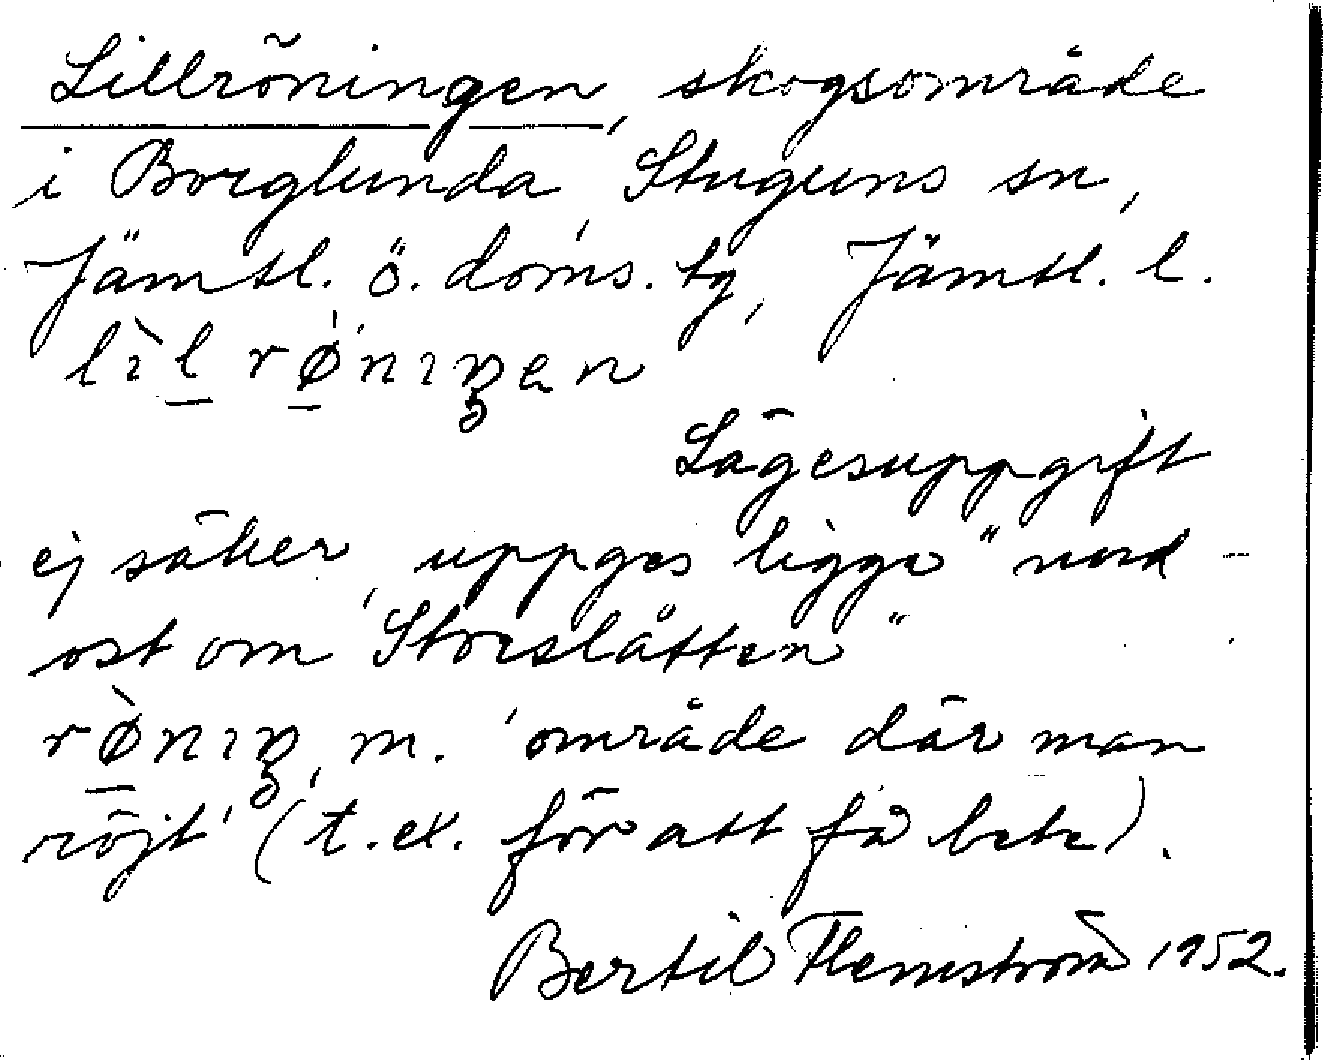 Lillröningen, skogsområde
i Borglunda, Stuguns sn,
Jämtl. ö. doms. tg, Jämtl. l.
lìl rø̀niŋen
Lägesuppgift
ej säker, uppges ligga "nord-
ost om Storslåtten"
rø̀niŋ, m. 'område där man
röjt' (t.ex. för att få bete).
Bertil Flemström 1952.